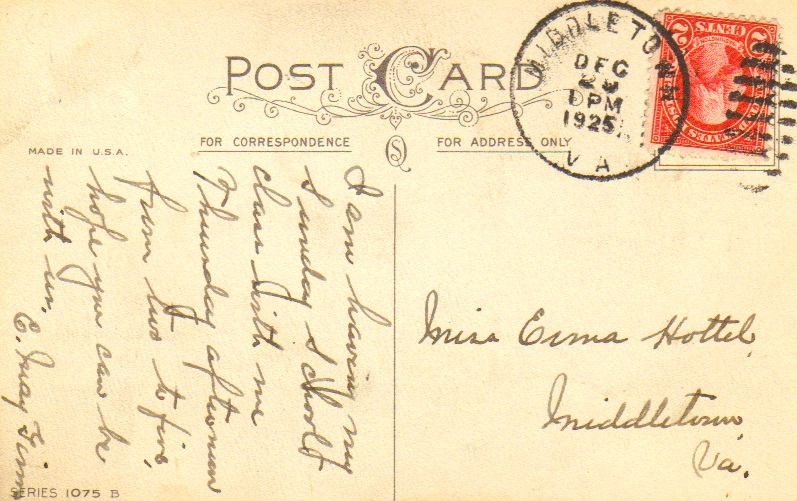 POST CARD
MIDDLETOWN
DEC
1 PM
1925
VA
2 CENTS 2
FOR CORRESPONDENCE
FOR ADDRESS ONLY
MADE IN U.S.A.
I am having my
Sunday School
class with me
Thursday afternoon
from two to five,
hope you can be
with us.
E. May
Miss Erma Hottel
Middletown,
Va.
SERIES 1075 B